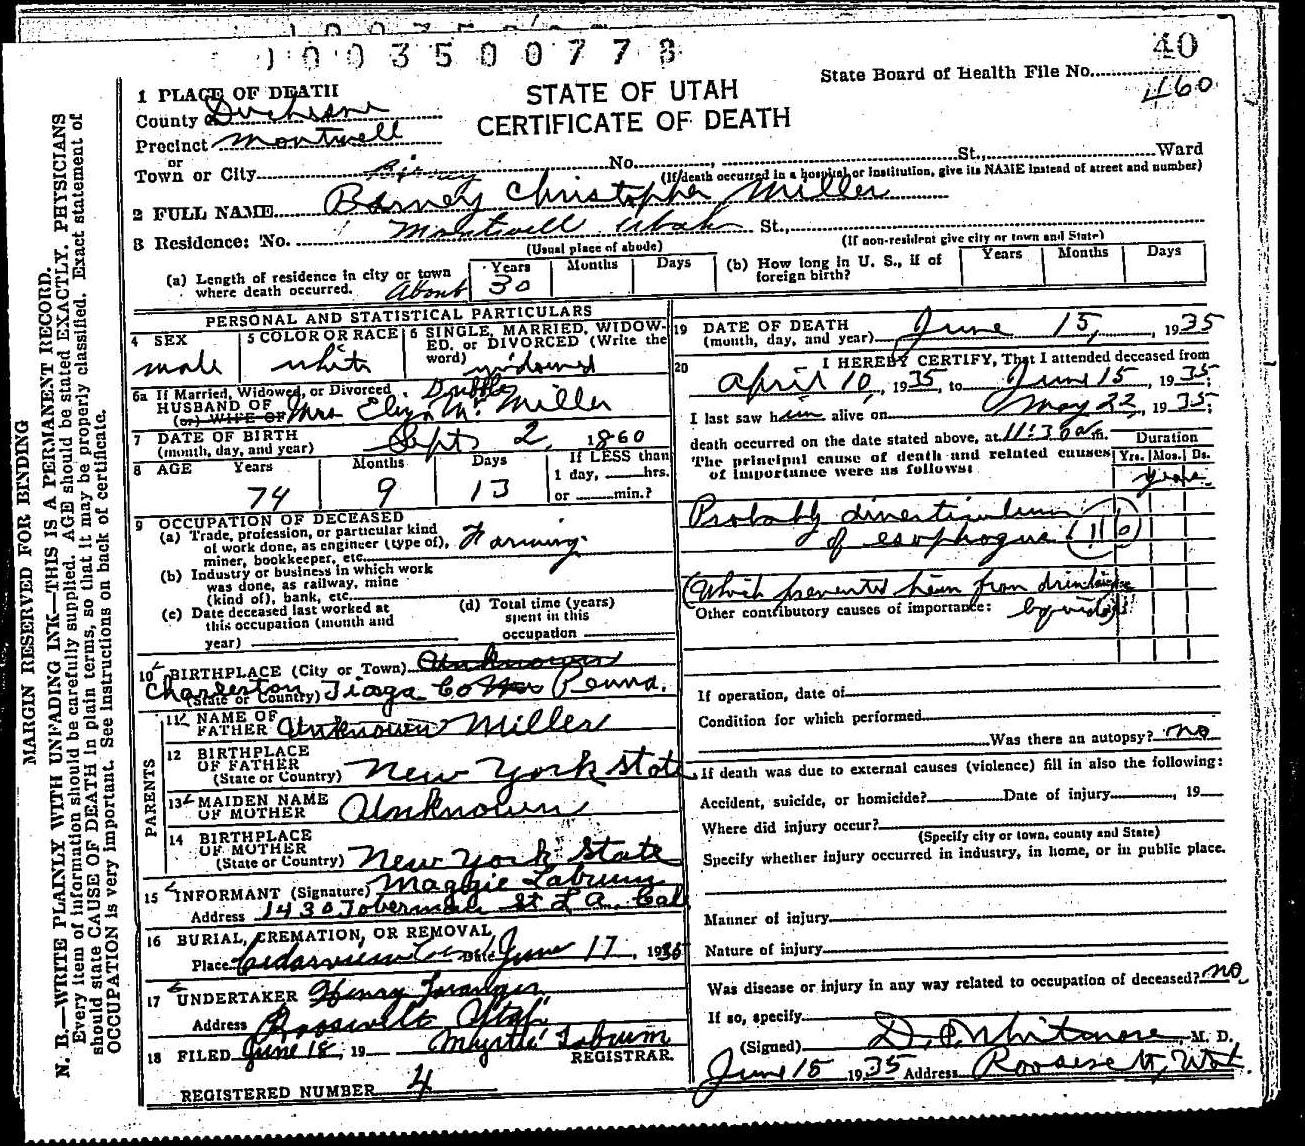 1003500778
40
State Board of Health File No.
460
STATE OF UTAH
CERTIFICATE OF DEATH
1 PLACE OF DEATH
County of Duchesne
Precinct Montwell
or
Town or City No. , St., Ward
(If death occurred in a hospital or institution, give its NAME instead of street and number)
2 FULL NAME Barney Christopher Miller
3 Residence: No. Montwell Utah St.,
(Usual place of abode)
(If non-resident give city or town and State)
(a) Length of residence in city or town where death occurred. About
Years Months Days
30
(b) How long in U. S., if of foreign birth?
Years Months Days
PERSONAL AND STATISTICAL PARTICULARS
4 SEX
male
5 COLOR OR RACE
white
6 SINGLE, MARRIED, WIDOWED, or DIVORCED (Write the word) widowed
6a If Married, Widowed, or Divorced
HUSBAND OF
(or) WIFE OF Mrs Eliza Mc Miller
7 DATE OF BIRTH
(month, day, and year) Sept 2, 1860
8 AGE Years Months Days
74 9 13
If LESS than
1 day, hrs.
or min.?
9 OCCUPATION OF DECEASED
(a) Trade, profession, or particular kind
of work done, as engineer (type of),
miner, bookkeeper, etc. Farming
(b) Industry or business in which work
was done, as railway, mine
(kind of), bank, etc.
(c) Date deceased last worked at
this occupation (month and
year)
(d) Total time (years)
spent in this
occupation
10 BIRTHPLACE (City or Town) Unknown
Charleston Tioga Co Penna.
(State or Country)
PARENTS
11 NAME OF
FATHER Unknown Miller
12 BIRTHPLACE
OF FATHER
(State or Country) New York State
13 MAIDEN NAME
OF MOTHER Unknown
14 BIRTHPLACE
OF MOTHER
(State or Country) New York State
15 INFORMANT (Signature) Maggie Labrum
Address 1430 Toberman St L A. Cal
16 BURIAL, CREMATION, OR REMOVAL
Place Cedarview Cem Date June 17, 1935
17 UNDERTAKER Henry
Address Roosevelt Utah
18 FILED June 18, 19 Myrtle Labrum
REGISTRAR.
REGISTERED NUMBER 4
19 DATE OF DEATH
(month, day, and year) June 15, 1935
20 I HEREBY CERTIFY, That I attended deceased from
April 10, 1935, to June 15, 1935;
I last saw him alive on May 22, 1935;
death occurred on the date stated above, at 11:30 a.m.
The principal cause of death and related causes
of importance were as follows:
Duration
Yrs. Mos. Ds.
years
Probably diverticulum
of esophagus
(Which prevented him from drinking
liquids)
Other contributory causes of importance:
If operation, date of
Condition for which performed
Was there an autopsy? no
If death was due to external causes (violence) fill in also the following:
Accident, suicide, or homicide? Date of injury , 19
Where did injury occur?
(Specify city or town, county and State)
Specify whether injury occurred in industry, in home, or in public place.
Manner of injury
Nature of injury
Was disease or injury in any way related to occupation of deceased? no
If so, specify
(Signed) D. P. Whitmore, M. D.
June 15 1935 Address Roosevelt, Utah
MARGIN RESERVED FOR BINDING
N. B.—WRITE PLAINLY WITH UNFADING INK—THIS IS A PERMANENT RECORD.
Every item of information should be carefully supplied. AGE should be stated EXACTLY. PHYSICIANS
should state CAUSE OF DEATH in plain terms, so that it may be properly classified. Exact statement of
OCCUPATION is very important. See instructions on back of certificate.